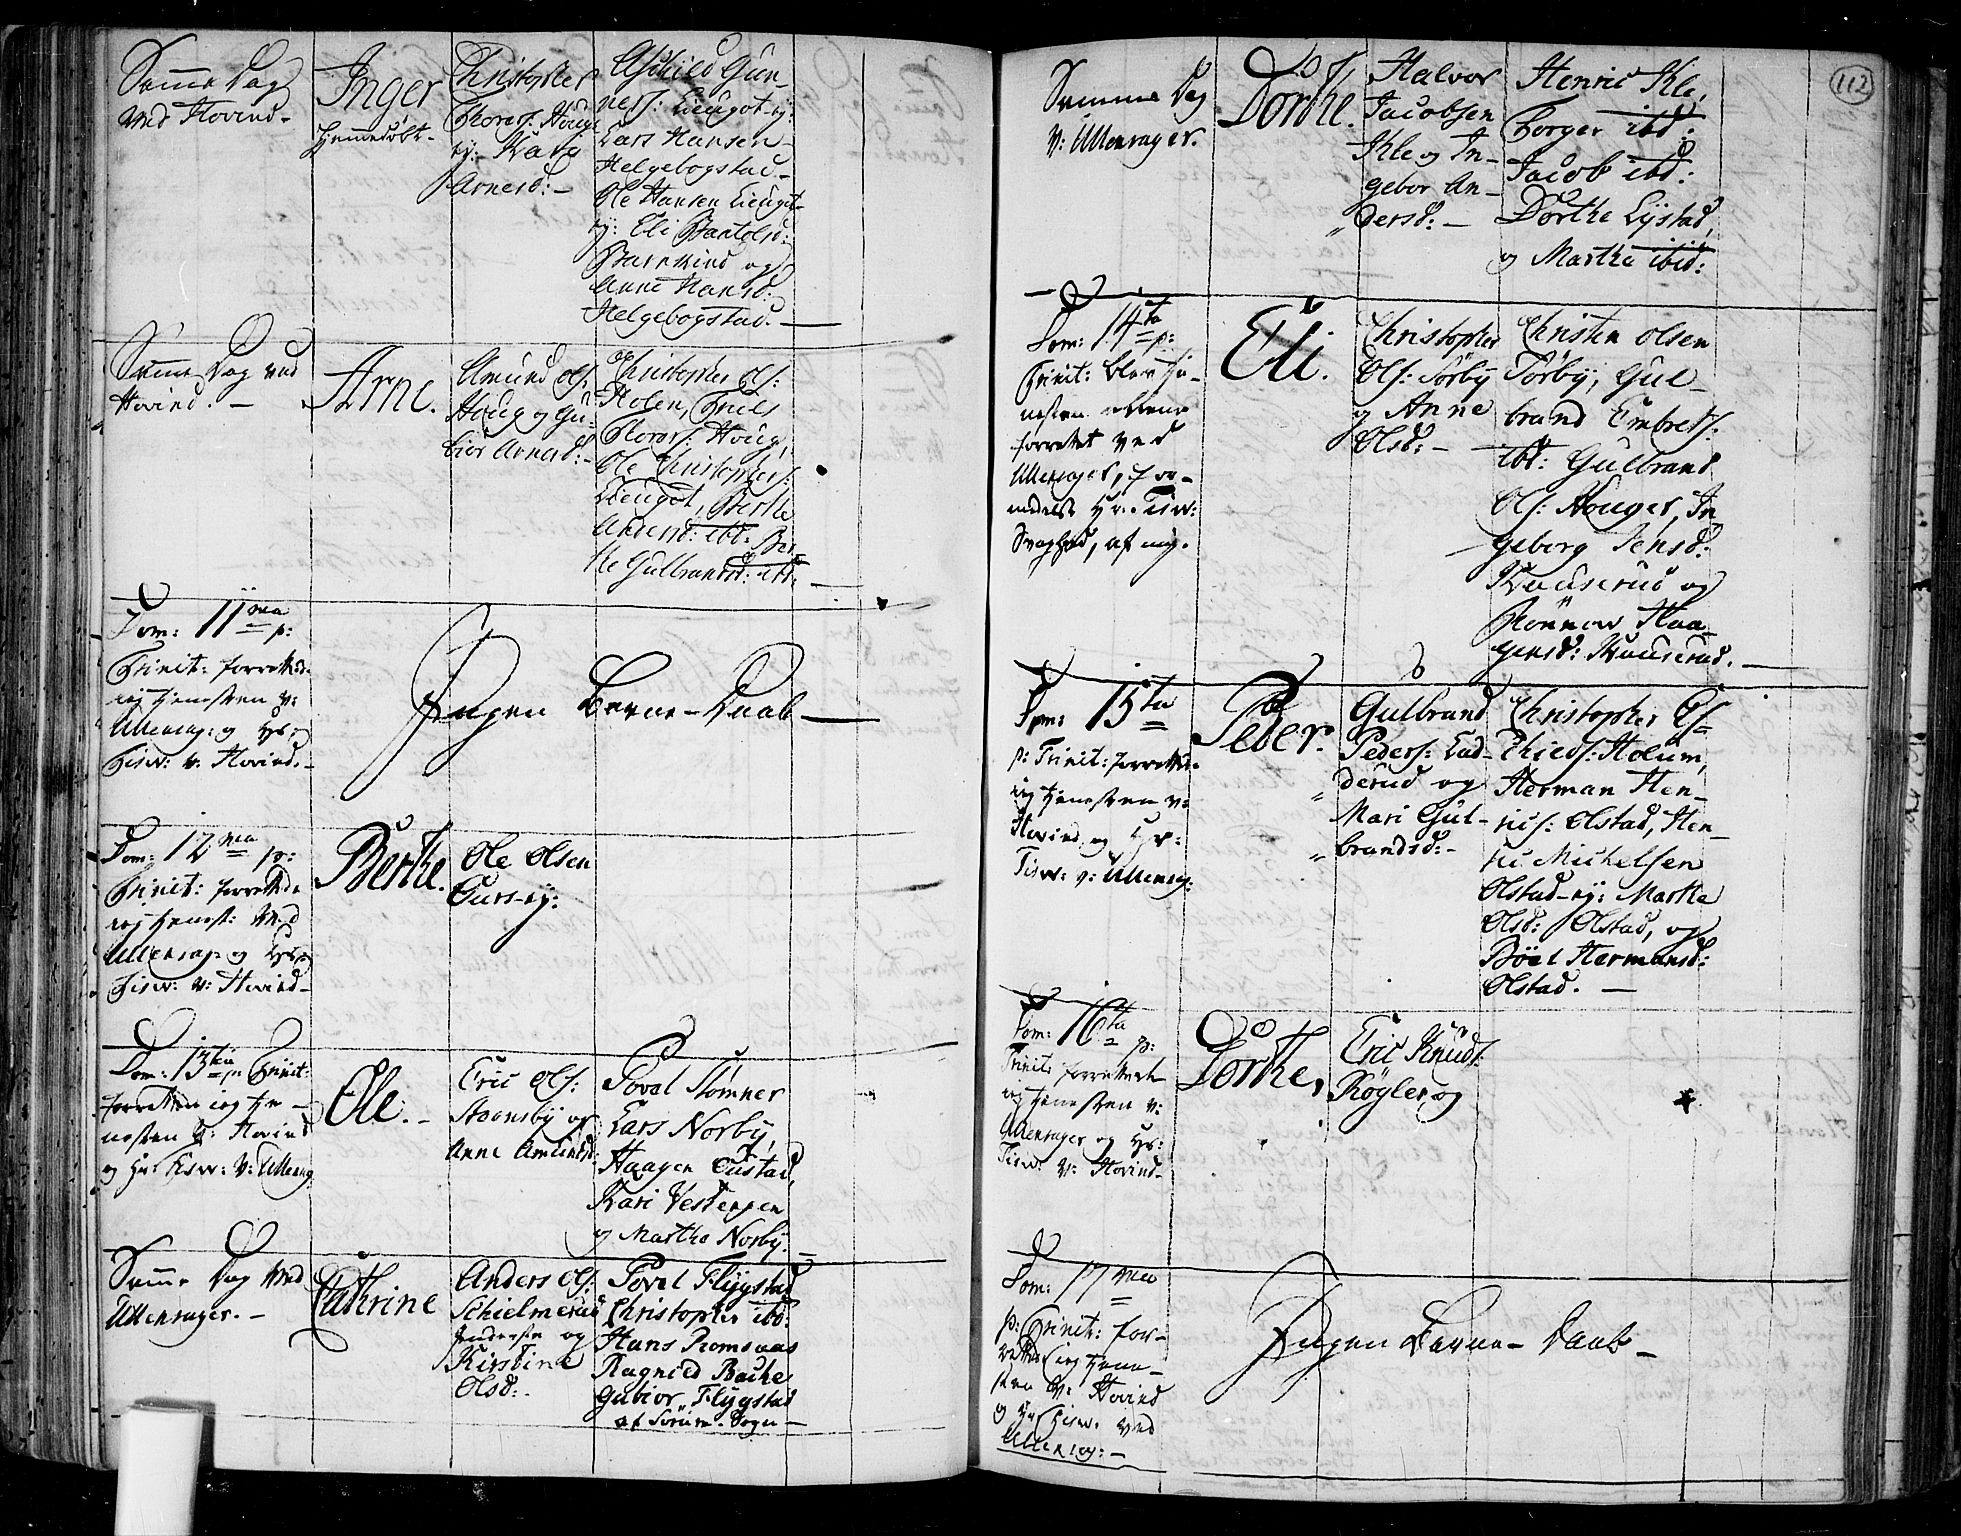 Samme Dag
ved Hovind.
Inger
Hjemmedøbt.
Christopher
Thorers: Houg
ej: Kari
Arnesd:
Aschild Gun-
ners: Lieugot-ej:
Lars Hansen
Helgebogstad
Ole Hansen Lieugot-
ej: Eli Bartolsd:
Barkind og
Anne Hansd:
Helgebogstad.
Samme Dag ved
Hovind.
Arne.
Amund Ols:
Houg og Gu-
bior Arnesd:
Christopher Ols:
Holen, Truls
Thorers: Houg,
Ole Christophers:
Lieugot, Berthe
Andersd: ibd: Ber-
the Gulbrandsd: ibd:
Dom: 11ma p:
Trinit: forrettede
ieg Tjenesten v:
Ullensag: og Hr:
Tisw: v: Hovind.
Ingen Børne-Daab
Dom: 12ma p:
Trinit: forrettede
ieg Tjenest: ved
Ullensag: og Hr:
Tisw: v: Hovind
Berthe.
Ole Olsen
Gurs-ej:
Dom: 13tia p: Trinit:
forretted ieg Tje-
nesten v: Hovind
og Hr: Tisw: v: Ullensag:
Ole.
Eric Ols:
Stoensby og
Anne Amundsd:
Povel Stomner
Lars Norby,
Haagen Custad,
Kari Vestengen
og Marthe Norby.
Samme Dag ved
Ullensager.
Cathrine
Anders Ols:
Schielmerud
og
Kirstine
Olsd:
Povel Flygstad
Christopher ibd:
Hans Romsaas
Ragnild Bache
Gubior Flygstad
af Sørum-Sogn
112
Samme Dag
v: Ullensager.
Dorthe.
Halvor
Jacobsen
Kle og In-
gebor An-
dersd:
Henric Kle,
Borger ibd:
Jacob ibd:
Dorthe Lystad,
og Marthe ibid:
Dom: 14ta p:
Trinit: blev Tie-
nesten allene
forrettet ved
Ullensager, for-
medelst Hr: Tisw:
Svaghed, af mig.
Eli.
Christopher
Ols: Sørby
og Anne
Olsd:
Christen Olsen
Sørby, Gul-
brand Embrets:
ibd: Gulbrand
Ols: Houger, In-
geborg Jensd:
Kauserud og
Rønnow Haa-
gensd: Kauserud.
Dom: 15ta
p: Trinit: forrettede
ieg Tjenesten v:
Hovind og Hr:
Tisw: v: Ullensag:
Peder.
Gulbrand
Peders: Lad-
derud og
Mari Gul-
brandsd:
Christopher Es-
Holum,
Herman Hen-
rics: Olstad, Hen-
ric Michelsen
Olstad-ej: Marthe
Olsd: Olstad, og
Böel Hermansd:
Olstad.
Dom: 16ta p:
Trinit: forrettede
ieg Tjenesten v:
Ullensager og Hr:
Tisw: v: Hovind
Dorthe,
Eric Knuds:
Røgler og
Dom: 17ma
p: Trinit: for-
rettede ieg Tjene-
sten v: Hovind
og Hr: Tisw: ved
Ullensag:
Ingen Børne-Daab